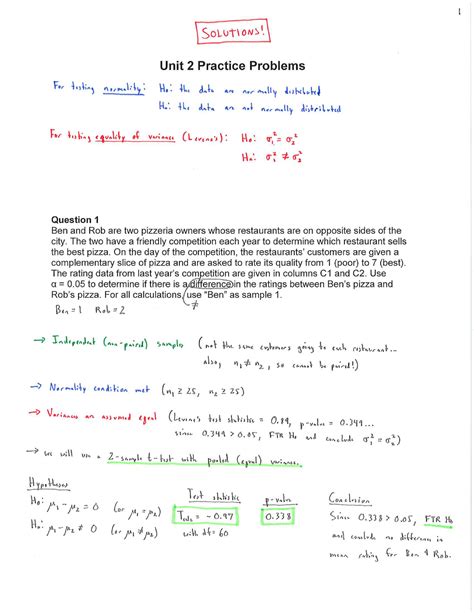 1
SOLUTIONS!
Unit 2 Practice Problems
For testing normality: Ho: the data are normally distributed
Ha: the data are not normally distributed
For testing equality of variance (Levene's): Ho: σ₁² = σ₂²
Ha: σ₁² ≠ σ₂²
Question 1
Ben and Rob are two pizzeria owners whose restaurants are on opposite sides of the
city. The two have a friendly competition each year to determine which restaurant sells
the best pizza. On the day of the competition, the restaurants' customers are given a
complementary slice of pizza and are asked to rate its quality from 1 (poor) to 7 (best).
The rating data from last year's competition are given in columns C1 and C2. Use
α = 0.05 to determine if there is a difference in the ratings between Ben's pizza and
Rob's pizza. For all calculations, use "Ben" as sample 1.
Ben = 1 Rob = 2 ≠
→ Independent (non-paired) samples (not the same customers going to each restaurant...
also, n₁ ≠ n₂, so cannot be paired!)
→ Normality condition met (n₁ ≥ 25, n₂ ≥ 25)
→ Variances are assumed equal (Levene's test statistic = 0.89, p-value = 0.349...
since 0.349 > 0.05, FTR Ho and conclude σ₁² = σ₂²)
→ we will use a 2-sample t-test with pooled (equal) variance.
Hypotheses Test statistic p-value Conclusion
Ho: μ₁ - μ₂ = 0 (or μ₁ = μ₂) T = -0.97 0.338 Since 0.338 > 0.05, FTR Ho
Ha: μ₁ - μ₂ ≠ 0 (or μ₁ ≠ μ₂) with df = 60 and conclude no difference in
mean rating for Ben & Rob.